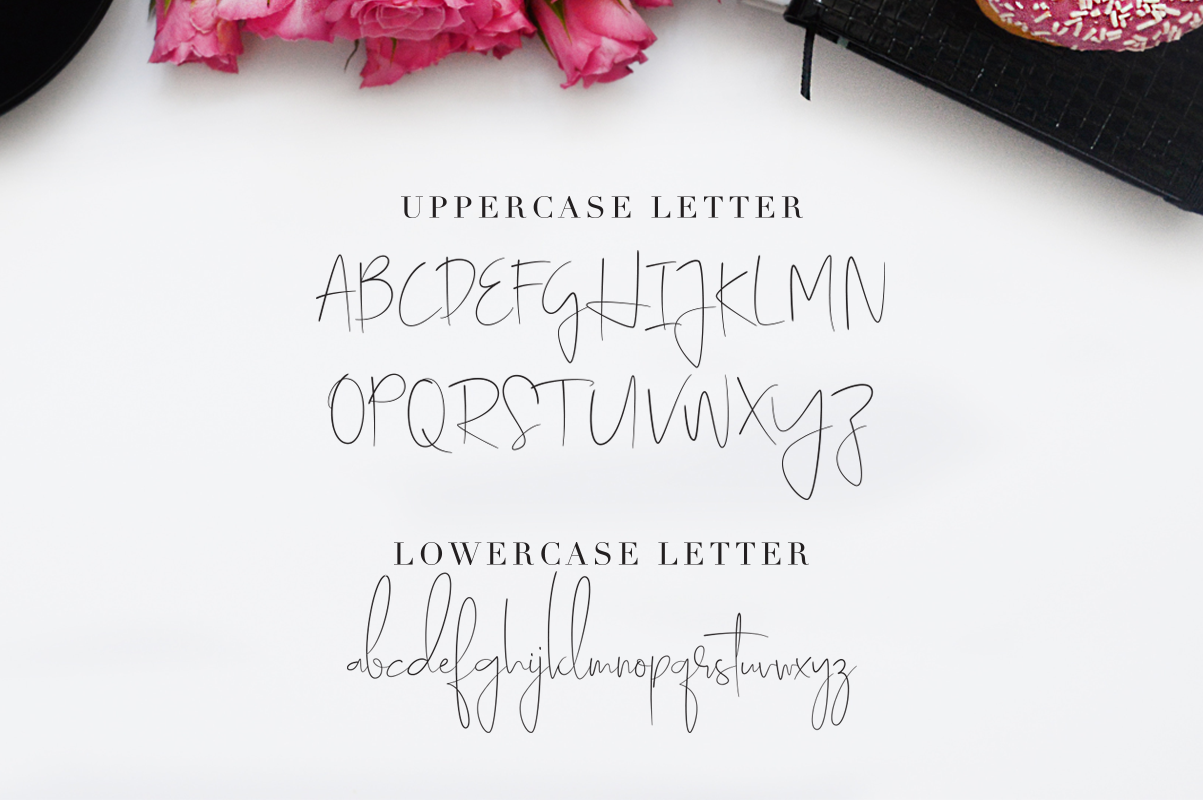 UPPERCASE LETTER
ABCDEFGHIJKLMN
OPQRSTUVWXYZ
LOWERCASE LETTER
abcdefghijklmnopqrstuvwxyz